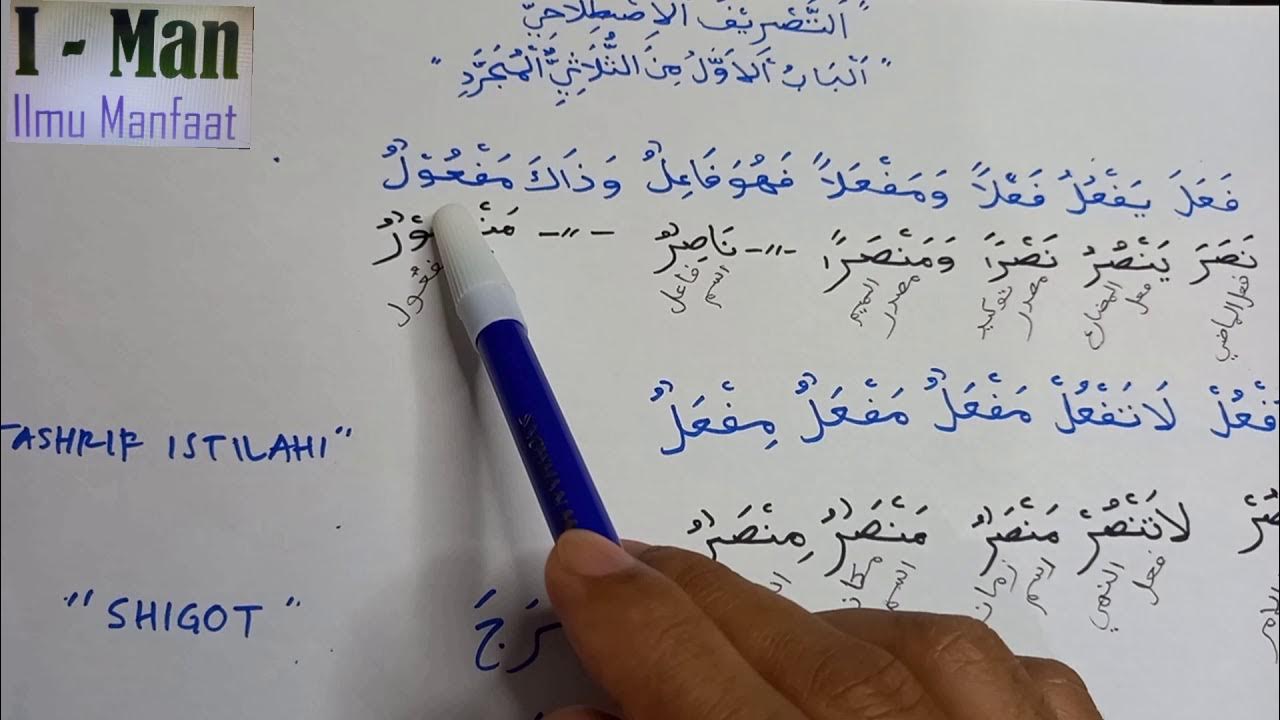 I - Man
Ilmu Manfaat
"اَلتَّصْرِيْفُ الْاِصْطِلَاحِيّ"
"اَلْبَابُ اَلْاَوَّلُ مِنَ الثُّلَاثِيِّ الْمُجَرَّدِ"
فَعَلَ يَفْعُلُ فَعْلاً وَمَفْعَلاً فَهُوَ فَاعِلٌ وَذَاكَ مَفْعُوْلٌ
نَصَرَ يَنْصُرُ نَصْرًا وَمَنْصَرًا -〃- نَاصِرٌ -〃-
فعل الماضي
فعل المضارع
مصدر توكيد
مصدر الميم
اسم فاعل
لَاتَفْعُلْ مَفْعَلٌ مَفْعَلٌ مِفْعَلٌ
"TASHRIF ISTILAHI"
لَاتَنْصُرْ مَنْصَرٌ مَنْصَرٌ مِنْصَرٌ
فعل النهي
اسم زمان
اسم مكان
"SHIGOT"